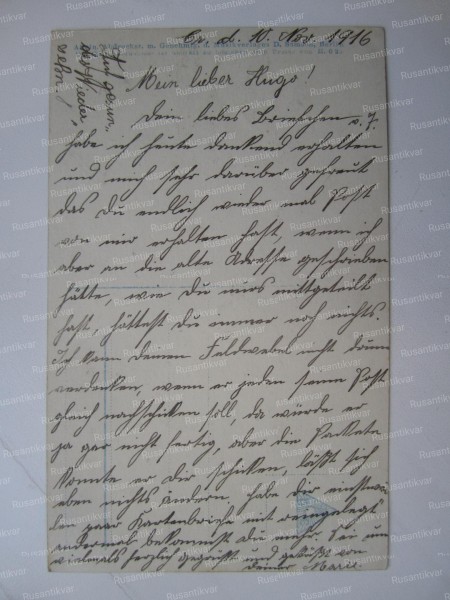 Cr. d. 10. Nov. 1916
Auf gesun-
des Wieder-
sehn!
Mein lieber Hugo!
Dein liebes Briefchen v. 7.
habe ich heute dankend erhalten
und mich sehr darüber gefreut
das Du endlich wieder mal Post
von mir erhalten hast, wenn ich
aber an die alte Adresse geschrieben
hätte, wie Du mirs mittgeteilt
hast, hättest Du immer noch nichts.
Ich kann deinem Feldwebel nicht
verdenken, wenn er jeden seine Post
gleich nachschicken soll, da würde er
ja gar nicht fertig, aber die Packete
könnte er dir schicken, läßt sich
eben nichts ändern, habe Dir einstwei-
len paar Kartenbriefe mit reingelegt
andermal bekommst du mehr. Sei nun
vielmals herzlich gegrüßt und geküßt von
Deiner Marie
Rusantikvar